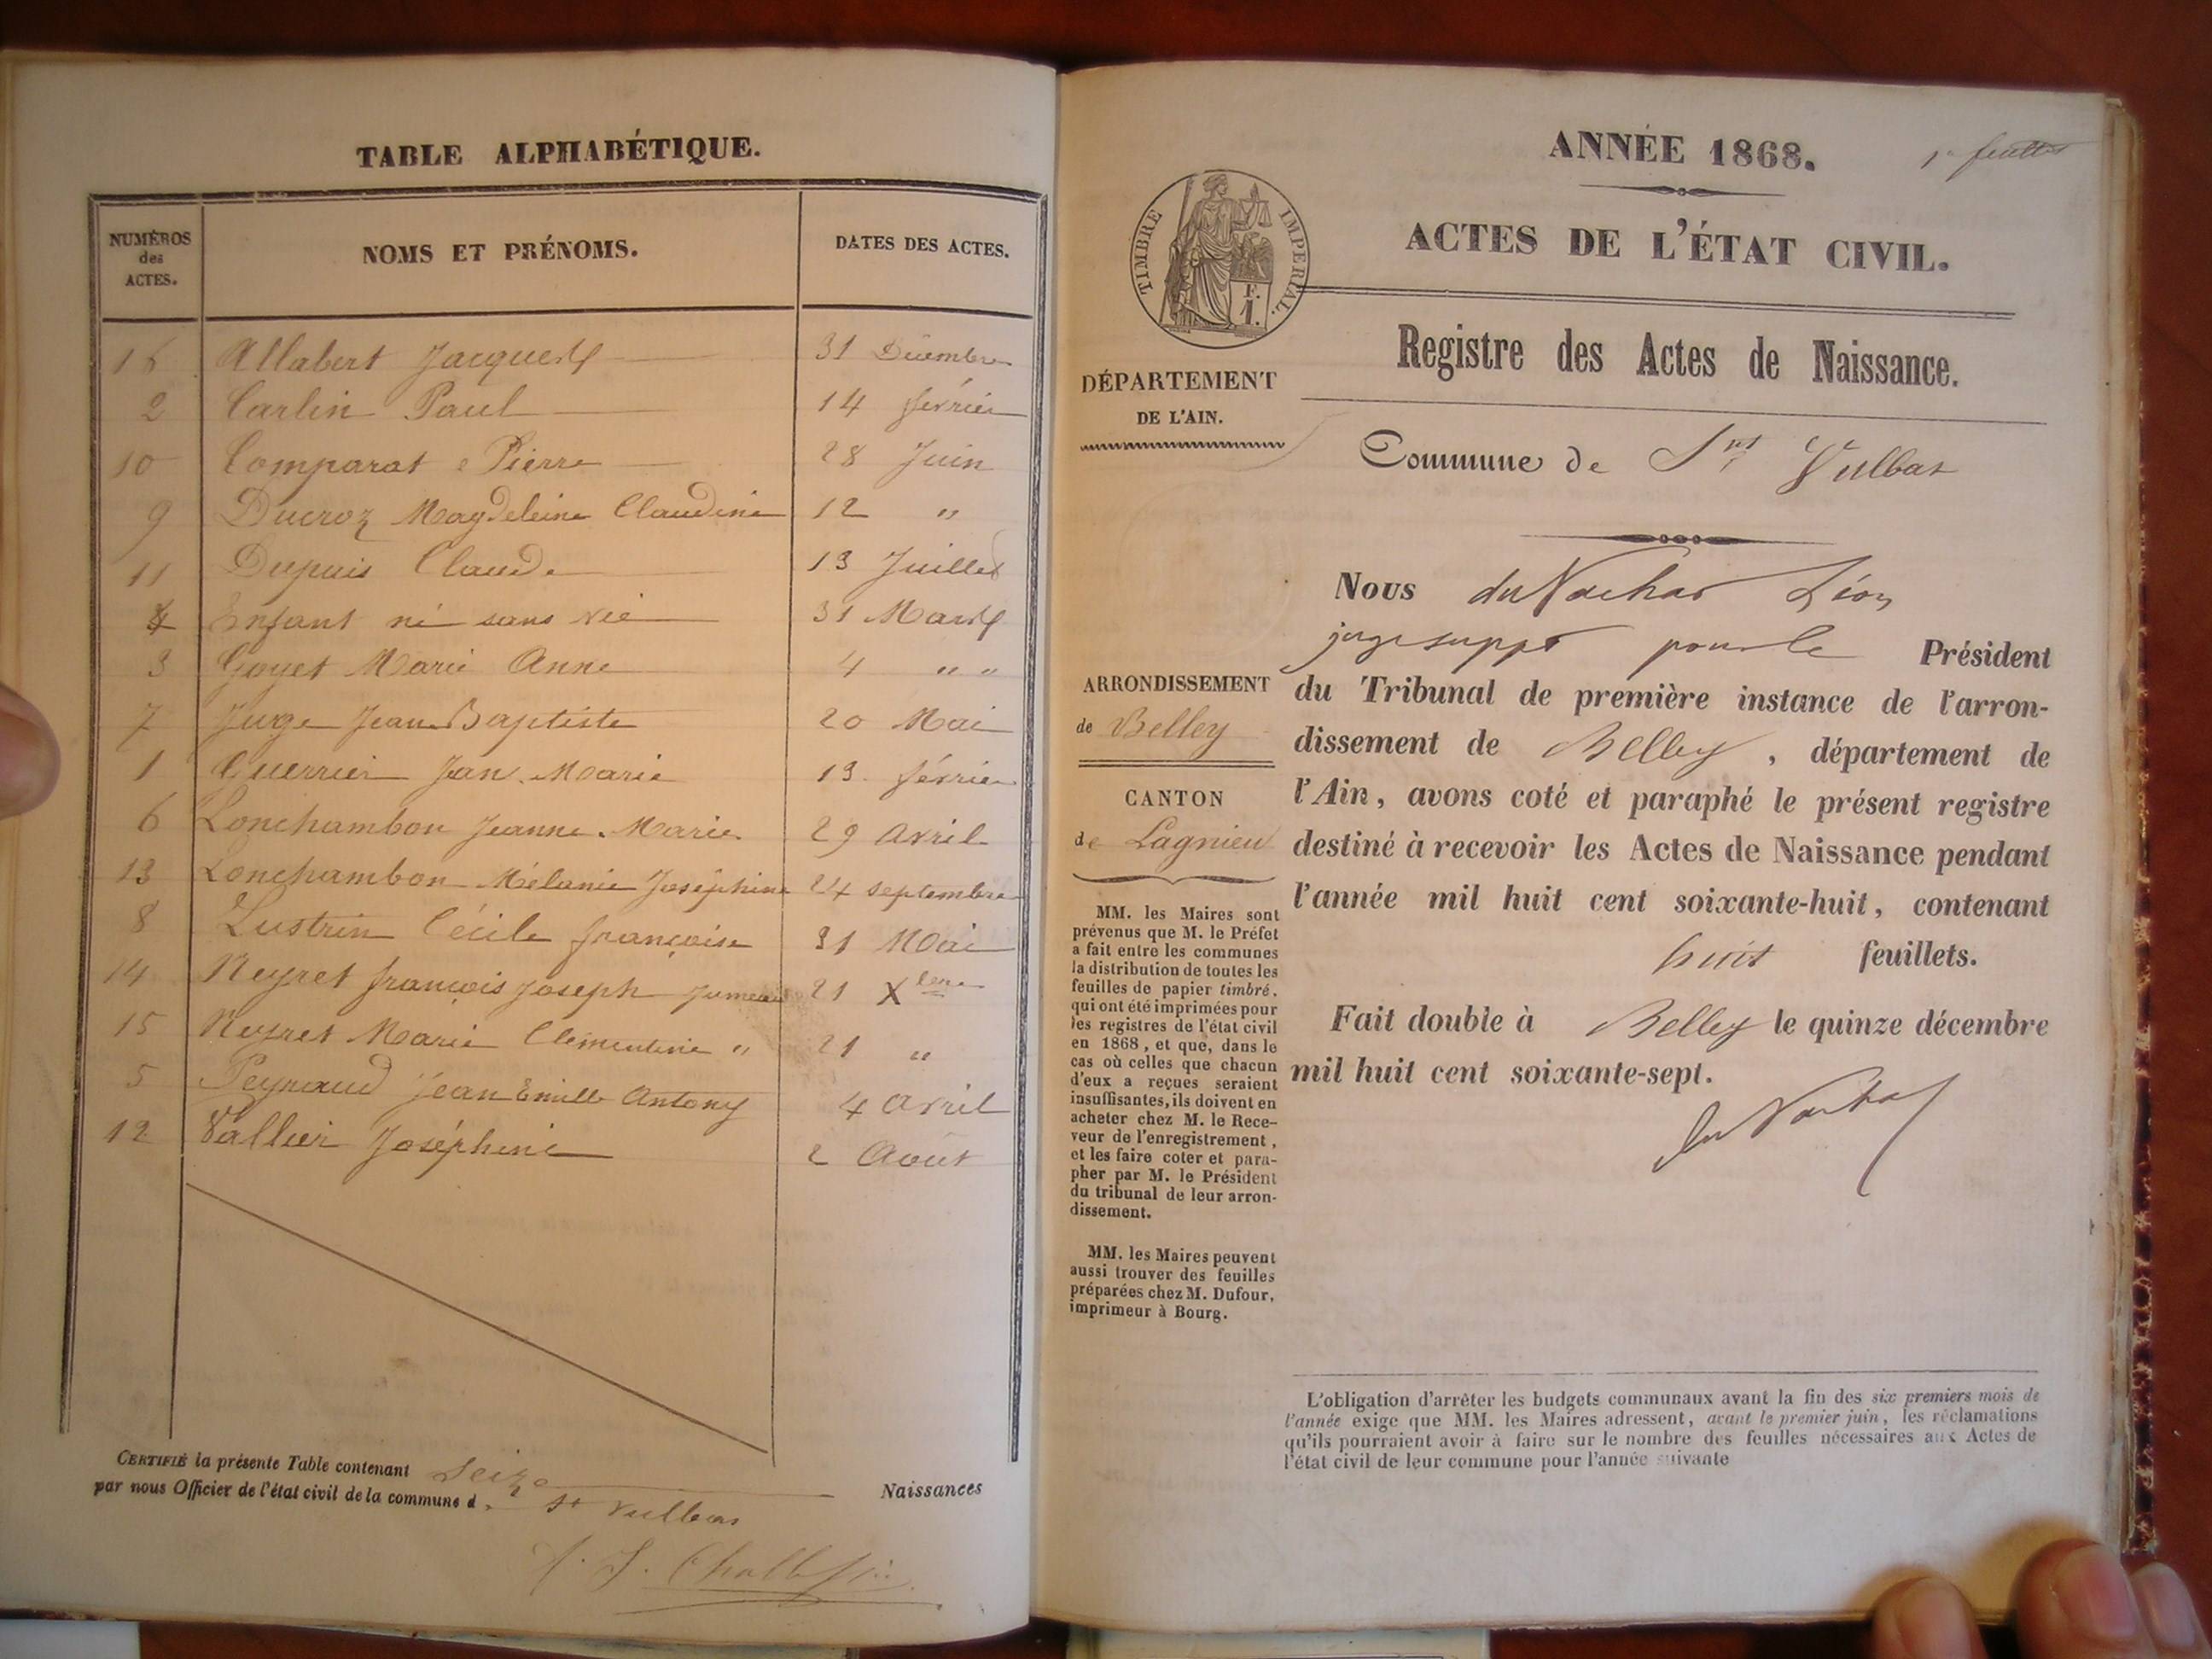 TABLE ALPHABÉTIQUE.
NUMÉROS des ACTES. NOMS ET PRÉNOMS. DATES DES ACTES.
16 Allabert Jacques 31 Décembre
2 Carlin Paul 14 février
10 Comparat Pierre 28 Juin
9 Ducroz Magdeleine Claudine 12 "
11 Dupuis Claude 13 Juillet
4 Enfant né sans vie 31 Mars
3 Goyet Marie Anne 4 " "
7 Juge Jean Baptiste 20 Mai
1 Guerrier Jean Marie 13 février
6 Lonchambon Jeanne Marie 29 avril
13 Lonchambon Mélanie Joséphine 24 septembre
8 Lustrin Cécile françoise 31 Mai
14 Neyret françois Joseph Jumeau 21 Xbre
15 Neyret Marie Clémentine " 21 "
5 Peyraud Jean Emille Antony 4 avril
12 Vallier Joséphine 2 Août
CERTIFIÉ la présente Table contenant seize Naissances
par nous Officier de l'état civil de la commune d. St Vulbas
ANNÉE 1868.
TIMBRE IMPÉRIAL.
F.
1.
ACTES DE L'ÉTAT CIVIL.
Registre des Actes de Naissance.
DÉPARTEMENT
DE L'AIN.
Commune de St Vulbas
Nous Léon
juge suppt pour le Président
du Tribunal de première instance de l'arron-
dissement de Belley, département de
l'Ain, avons coté et paraphé le présent registre
destiné à recevoir les Actes de Naissance pendant
l'année mil huit cent soixante-huit, contenant
huit feuillets.
Fait double à Belley le quinze décembre
mil huit cent soixante-sept.
ARRONDISSEMENT
de Belley
CANTON
de Lagnieu
MM. les Maires sont
prévenus que M. le Préfet
a fait entre les communes
la distribution de toutes les
feuilles de papier timbré,
qui ont été imprimées pour
les registres de l'état civil
en 1868, et que, dans le
cas où celles que chacun
d'eux a reçues seraient
insuffisantes, ils doivent en
acheter chez M. le Rece-
veur de l'enregistrement,
et les faire coter et para-
pher par M. le Président
du tribunal de leur arron-
dissement.
MM. les Maires peuvent
aussi trouver des feuilles
préparées chez M. Dufour,
imprimeur à Bourg.
L'obligation d'arrêter les budgets communaux avant la fin des six premiers mois de
l'année exige que MM. les Maires adressent, avant le premier juin, les réclamations
qu'ils pourraient avoir à faire sur le nombre des feuilles nécessaires aux Actes de
l'état civil de leur commune pour l'année suivante